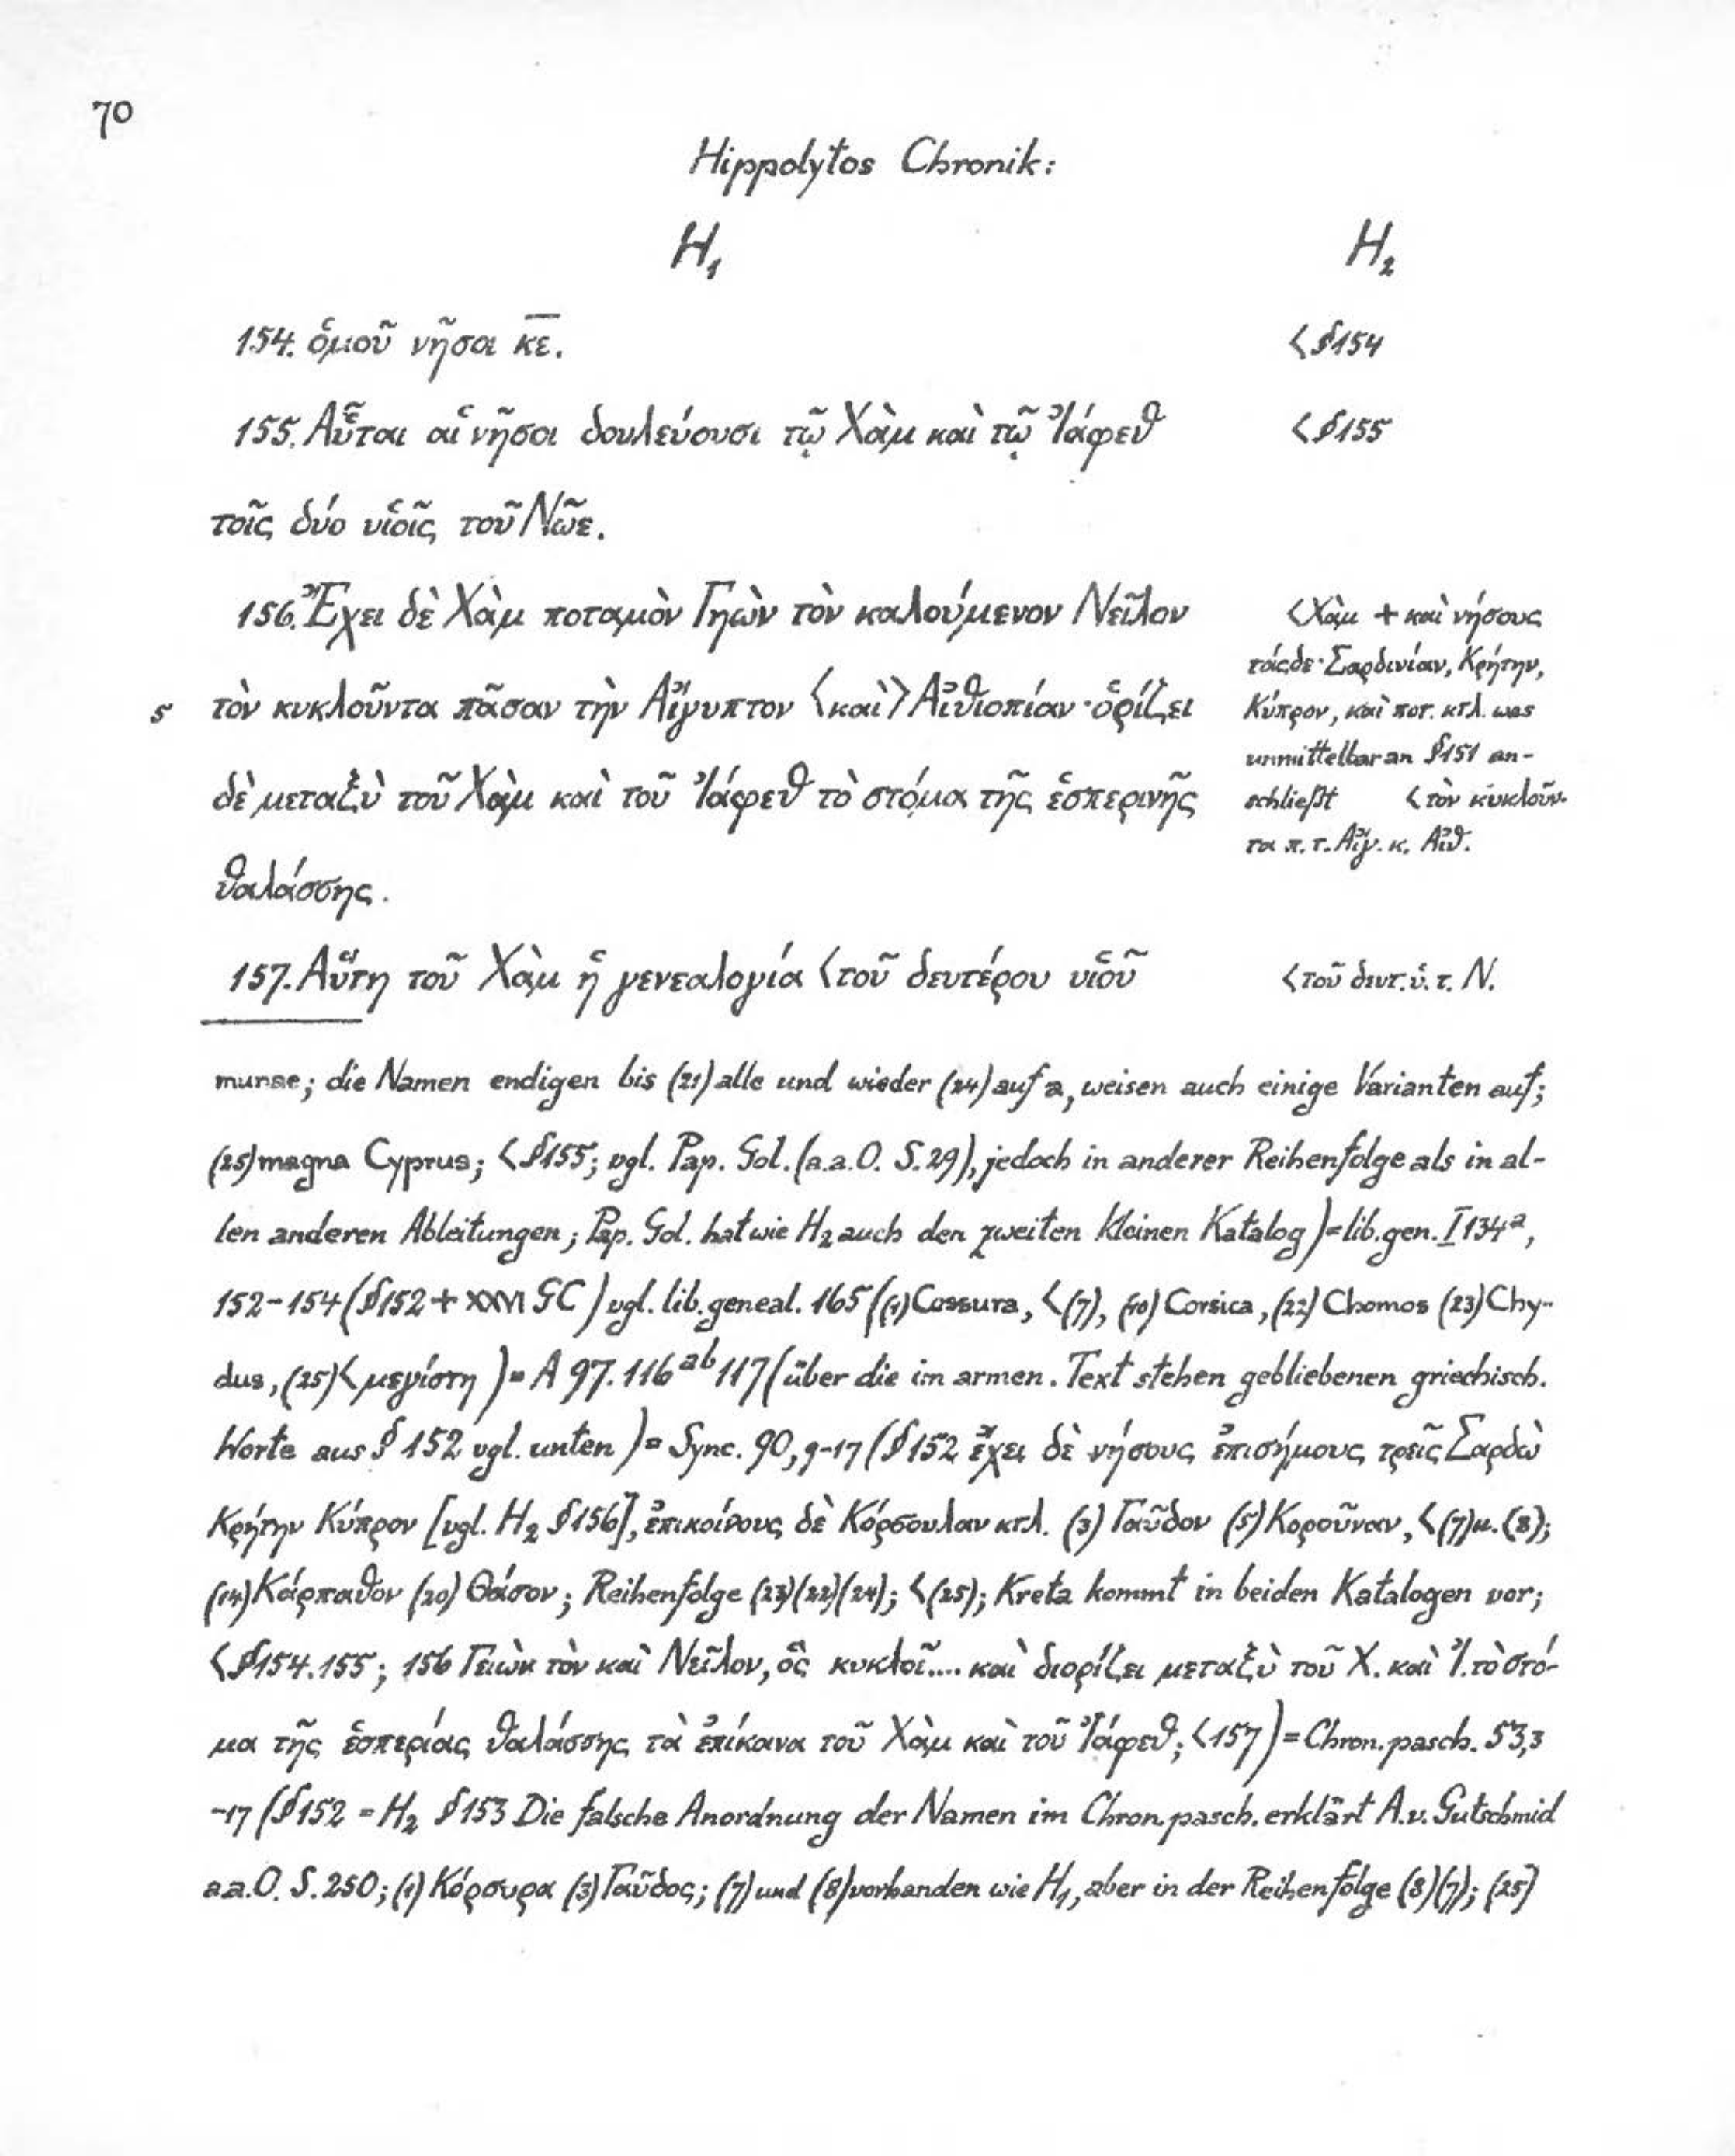 70
Hippolytos Chronik:
H₁ H₂
154. ὁμοῦ νῆσοι κ̅ε̅. < §154
155. Αὗται αἱ νῆσοι δουλεύουσι τῷ Χὰμ καὶ τῷ Ἰάφεθ < §155
τοῖς δύο υἱοῖς τοῦ Νῶε.
156. Ἔχει δὲ Χὰμ ποταμὸν Γηὼν τὸν καλούμενον Νεῖλον
5 τὸν κυκλοῦντα πᾶσαν τὴν Αἴγυπτον ⟨καὶ⟩ Αἰθιοπίαν· ὁρίζει
δὲ μεταξὺ τοῦ Χὰμ καὶ τοῦ Ἰάφεθ τὸ στόμα τῆς ἑσπερινῆς
θαλάσσης.
< Χὰμ + καὶ νήσους
τάςδε· Σαρδινίαν, Κρήτην,
Κύπρον, καὶ ποτ. κτλ. was
unmittelbar an §151 an-
schließt < τὸν κυκλοῦν-
τα π. τ. Αἴγ. κ. Αἰθ.
157. Αὕτη τοῦ Χὰμ ἡ γενεαλογία ⟨τοῦ δευτέρου υἱοῦ < τοῦ δευτ. ὑ. τ. Ν.
munae; die Namen endigen bis (21) alle und wieder (24) auf a, weisen auch einige Varianten auf;
(25) magna Cyprus; < §155; vgl. Pap. Gol. (a.a.O. S. 29), jedoch in anderer Reihenfolge als in al-
len anderen Ableitungen; Pap. Gol. hat wie H₂ auch den zweiten kleinen Katalog) = lib. gen. I 134ᵃ,
152-154 (§152 + XXVI GC) vgl. lib. geneal. 165 ((1) Cossura, < (7), (10) Corsica, (22) Chomos (23) Chy-
dus, (25) < μεγίστη) = A 97. 116ᵃᵇ 117 (über die im armen. Text stehen gebliebenen griechisch.
Worte aus § 152 vgl. unten) = Sync. 90,9-17 (§152 ἔχει δὲ νήσους ἐπισήμους τρεῖς Σαρδὼ
Κρήτην Κύπρον [vgl. H₂ §156], ἐπικοίνους δὲ Κόρσουλαν κτλ. (3) Γαῦδον (5) Κοροῦναν, < (7) u. (8);
(14) Κάρπαθον (20) Θάσον; Reihenfolge (23)(22)(24); < (25); Kreta kommt in beiden Katalogen vor;
< §154.155; 156 Γειὼν τὸν καὶ Νεῖλον, ὃς κυκλοῖ.... καὶ διορίζει μεταξὺ τοῦ Χ. καὶ Ἰ. τὸ στό-
μα τῆς ἑσπερίας θαλάσσης τὰ ἐπίκοινα τοῦ Χὰμ καὶ τοῦ Ἰάφεθ; < 157) = Chron. pasch. 53,3
-17 (§152 = H₂ §153 Die falsche Anordnung der Namen im Chron. pasch. erklärt A. v. Gutschmid
a.a.O. S. 250; (1) Κόρσυρα (3) Γαῦδος; (7) und (8) vorhanden wie H₁, aber in der Reihenfolge (8)(7); (25)